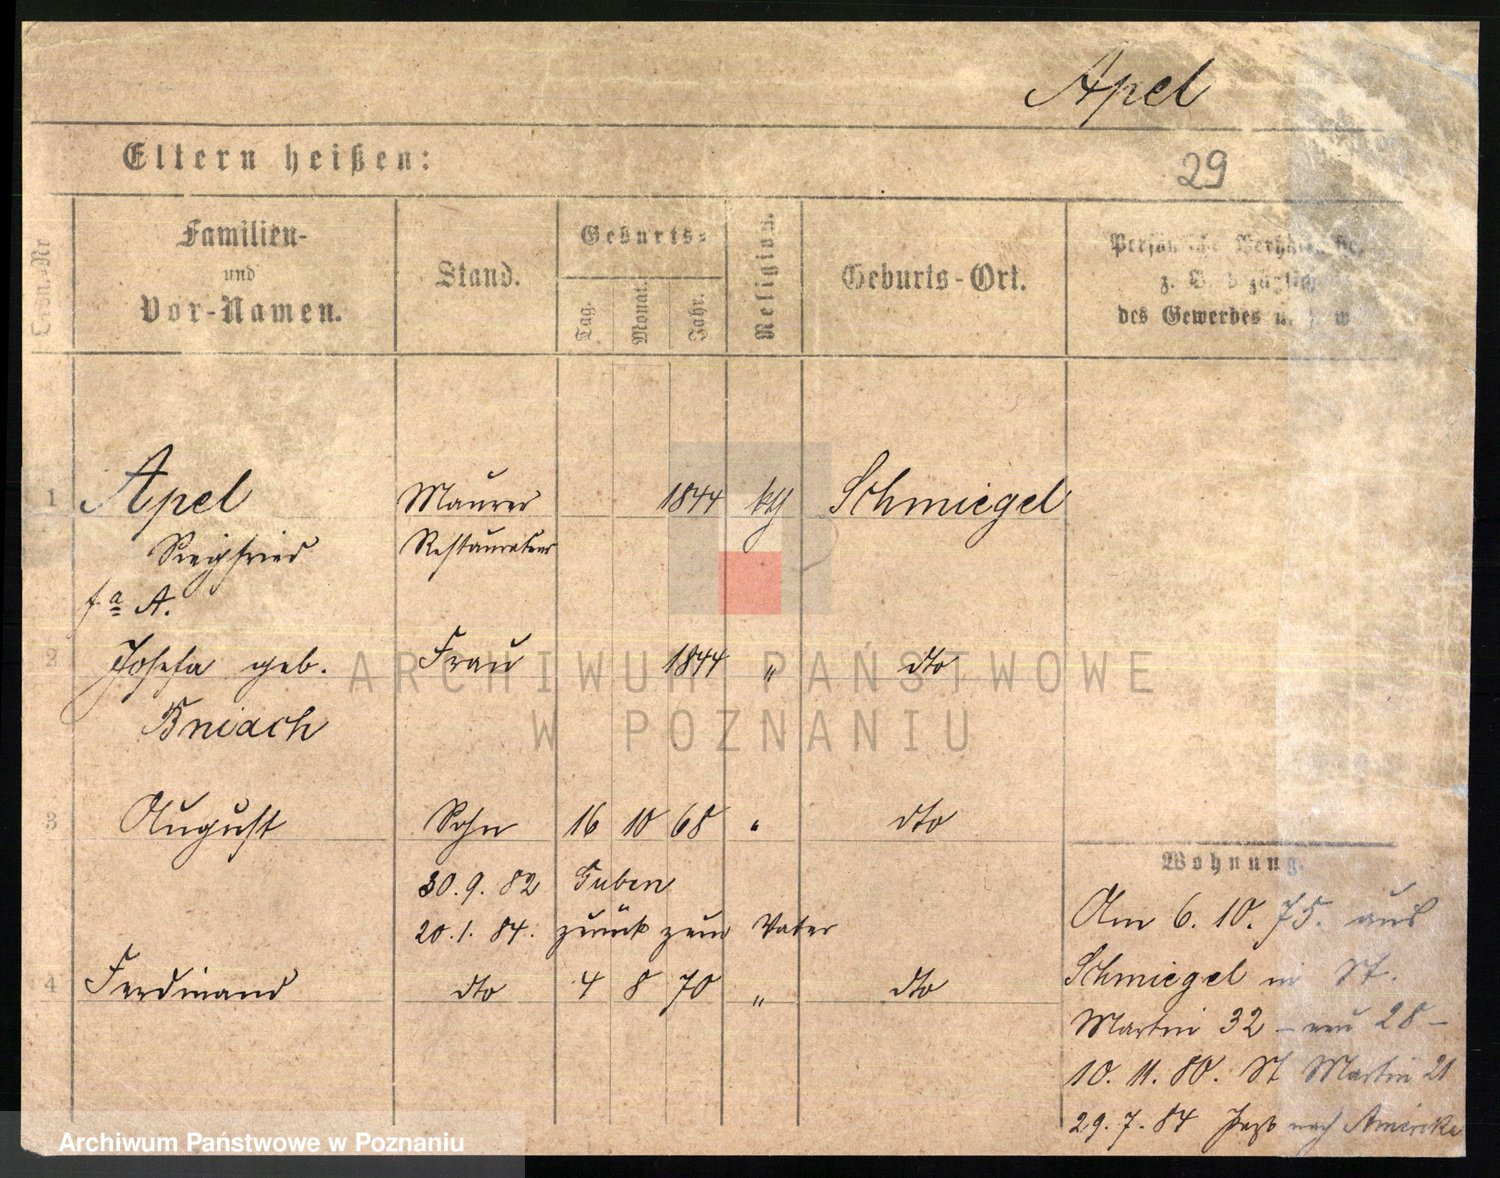 Apel
Eltern heißen:
29
Familien-
und
Vor-Namen.
Stand.
Geburts-
Tag.
Monat.
Jahr.
Religion.
Geburts-Ort.
des Gewerbes u. s. w
1 Apel Maurer 1844 kth Schmiegel
Siegfried Restaurateur
f. a A.
2 Josefa geb. Frau 1844 " dto
Bniach
3 August Sohn 16 10 68 " dto
30.9.82 Guben
20.1.84. zurück zum Vater
4 Ferdinand dto 4 8 70 " dto
Wohnung.
Am 6.10.75. aus
Schmiegel in St.
Martin 32 – neu 28 –
10.11.80. St Martin 21
29.7.84 Paß nach Amerika
ARCHIWUM PAŃSTWOWE
W POZNANIU
Archiwum Państwowe w Poznaniu